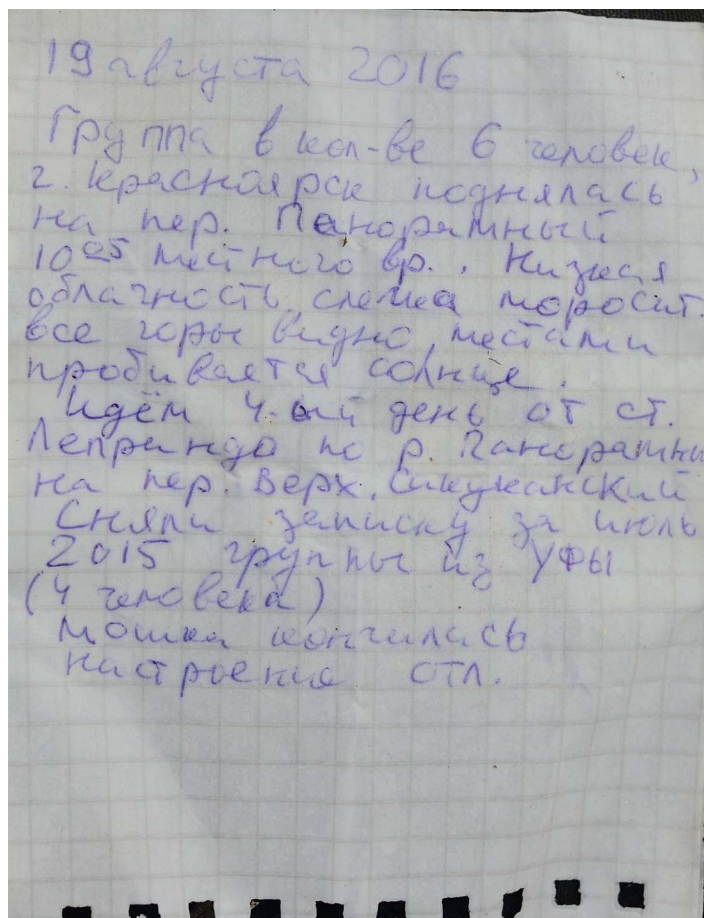 19 августа 2016
Группа в кол-ве 6 человек,
г. Красноярск поднялась
на пер. Панорамный
10 05 местного вр.. Низкая
облачность, слегка моросит.
все горы видно, местами
пробивается солнце.
Идём 4-ый день от ст.
Леприндо по р. Панорамный
на пер. Верх. Сакуканский
Сняли записку за июль
2015 группы из Уфы
(4 человека)
мошка кончилась
настроение отл.